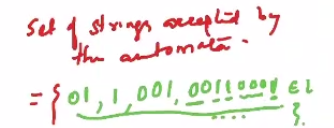 Set of strings accepted by
the automata.
= { 01, 1, 001, 00110001 ∈ L
.... }.